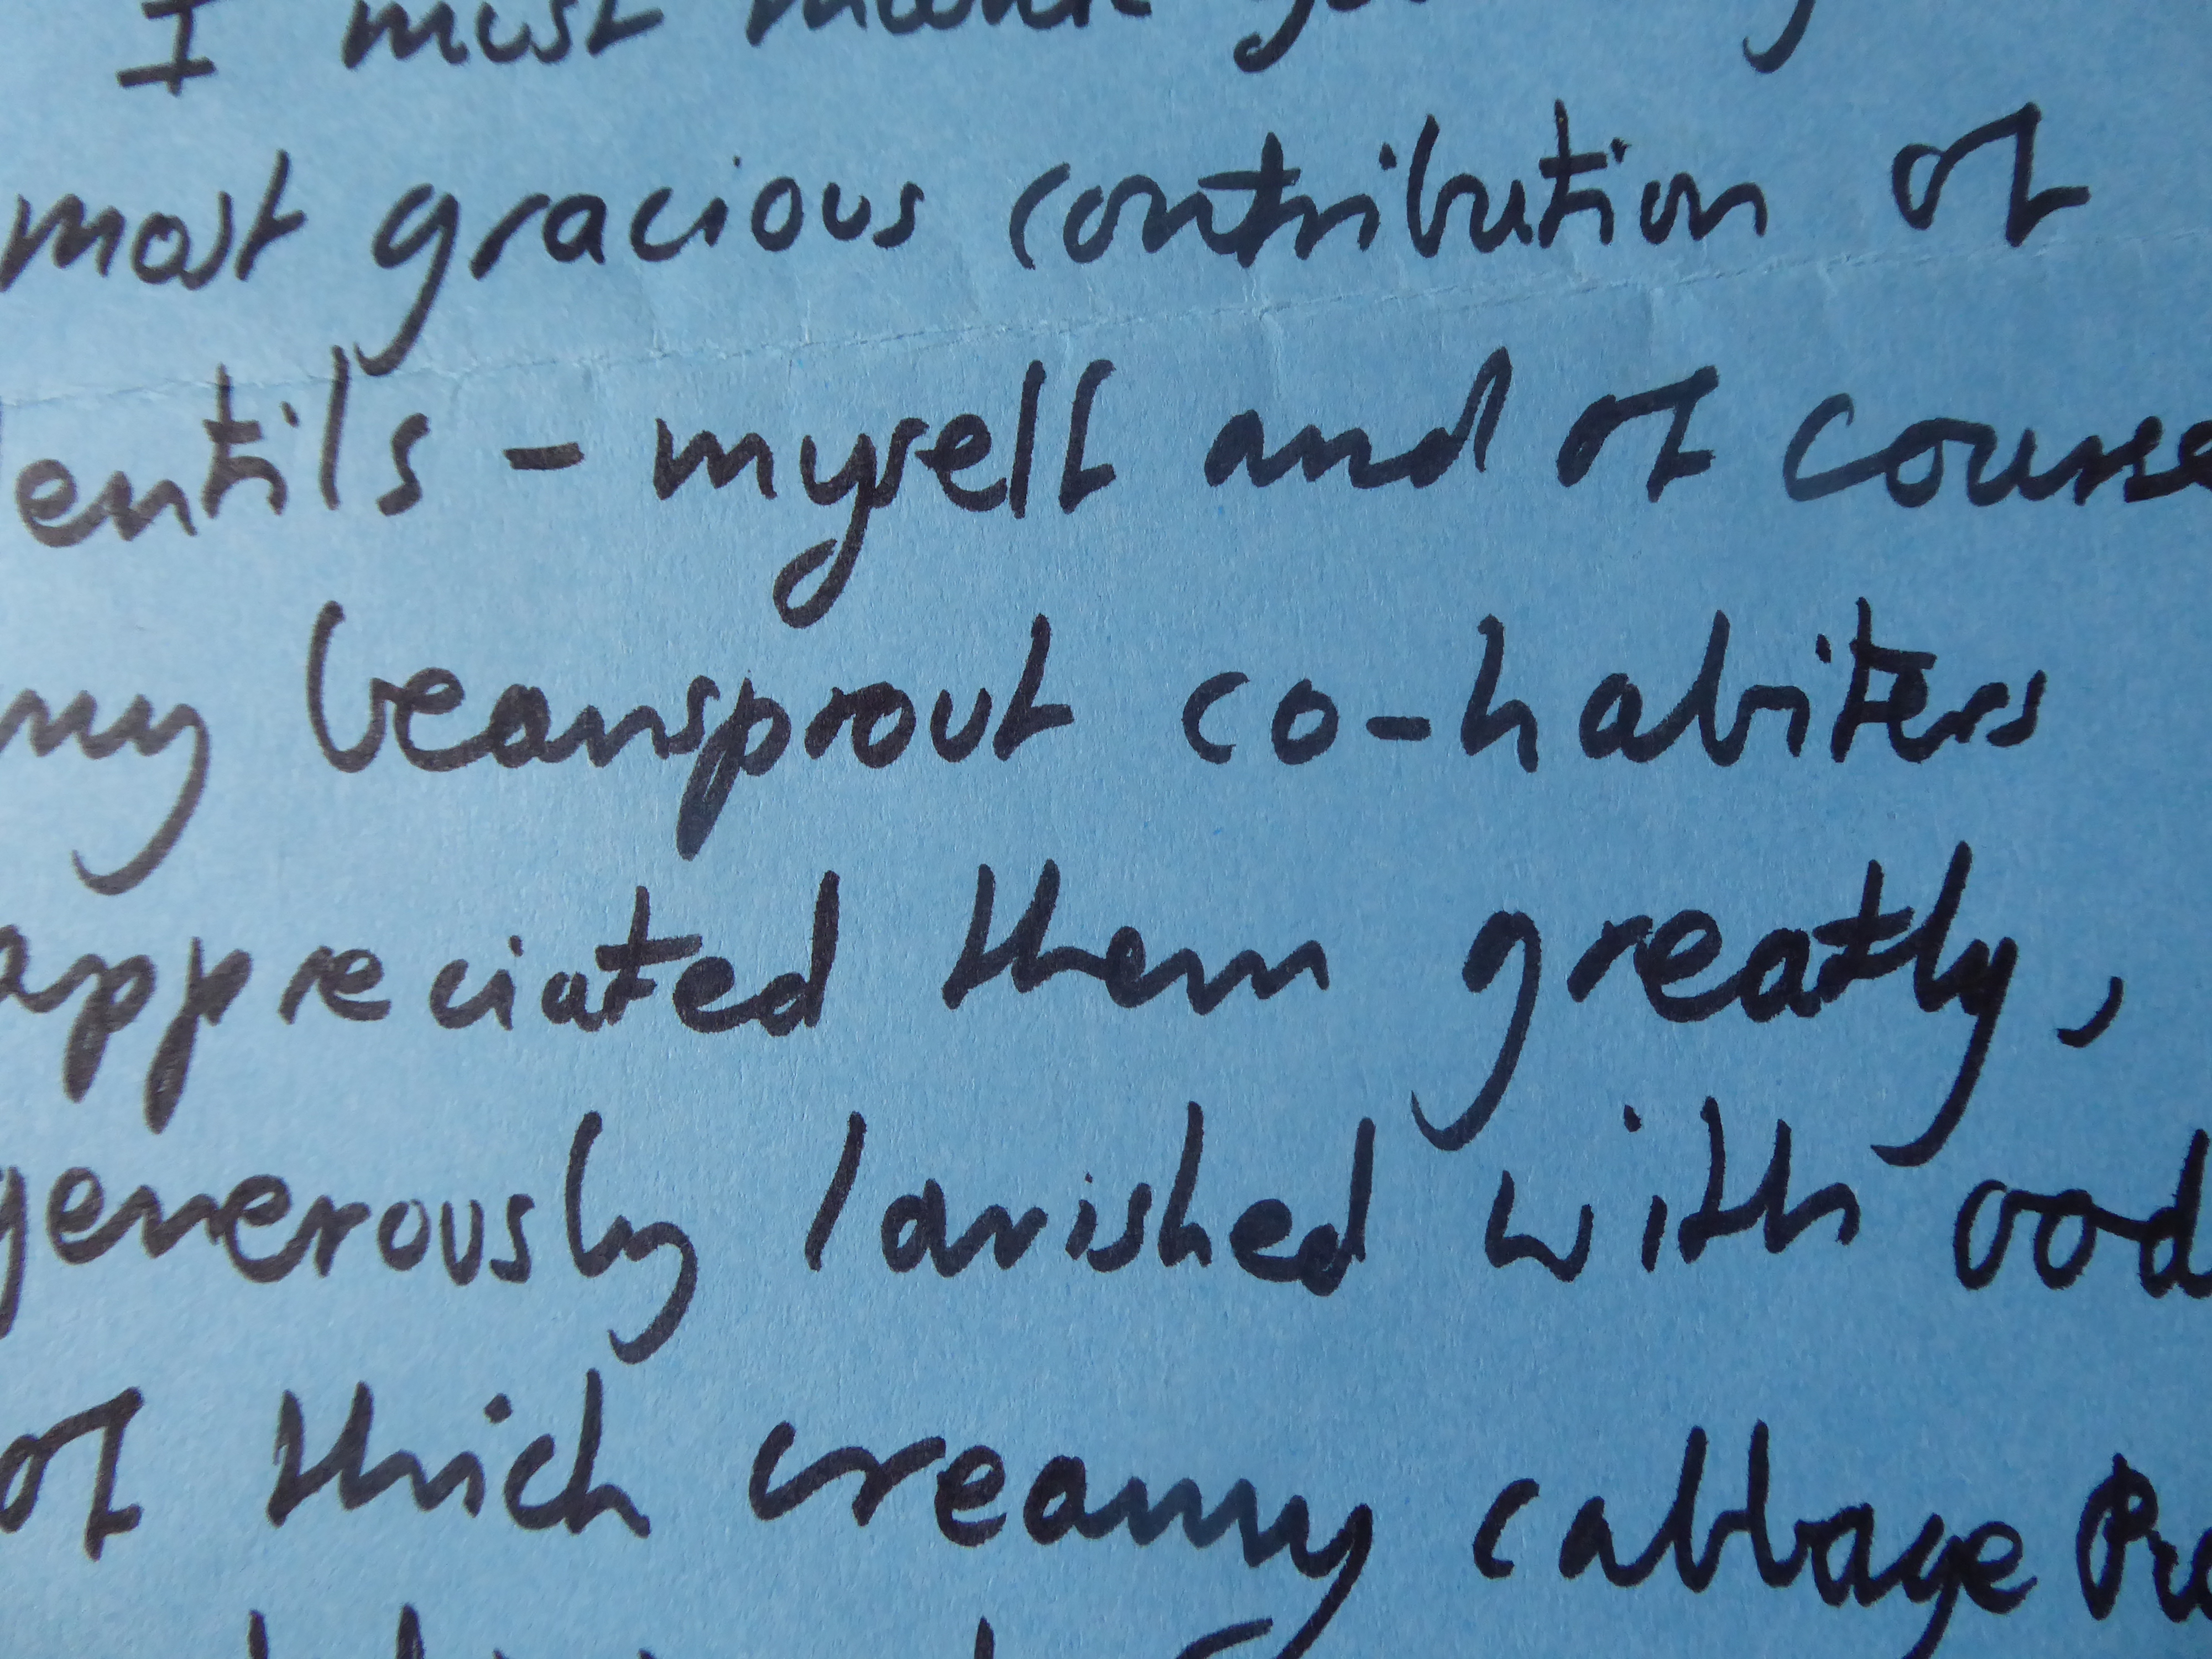 I must thank
most gracious contribution of
lentils - myself and of course
my beansprout co-habiters
appreciated them greatly,
generously lavished with ood
of thick creamy cabbage